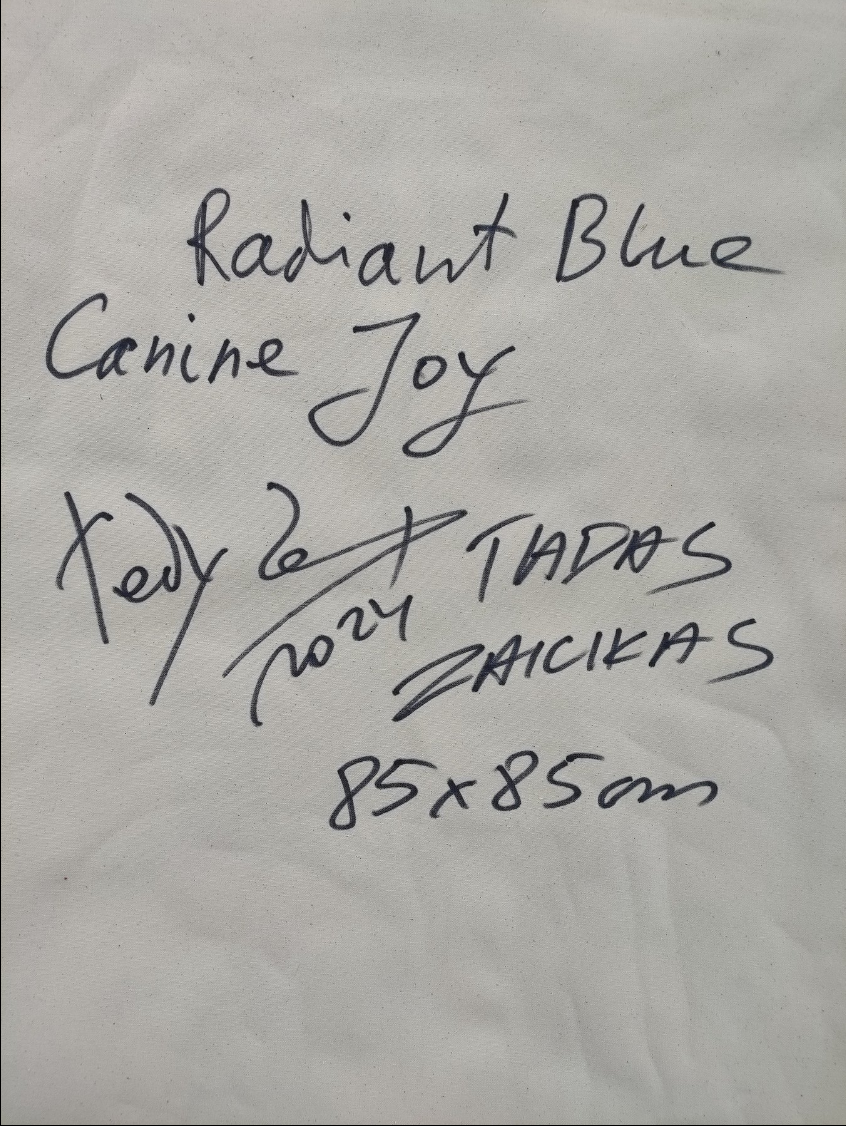 Radiant Blue
Canine Joy
TADAS
2024
ZAICIKAS
85x85cm